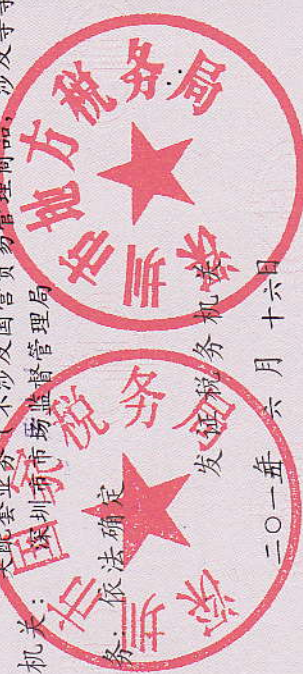 关配套业务(不涉及国营贸易管理商品,涉及
机关: 深圳市市场监督管理局
务: 依法确定
发证税务机关
二〇一五年 六月 十六日
深圳市国家税务局
深圳市地方税务局